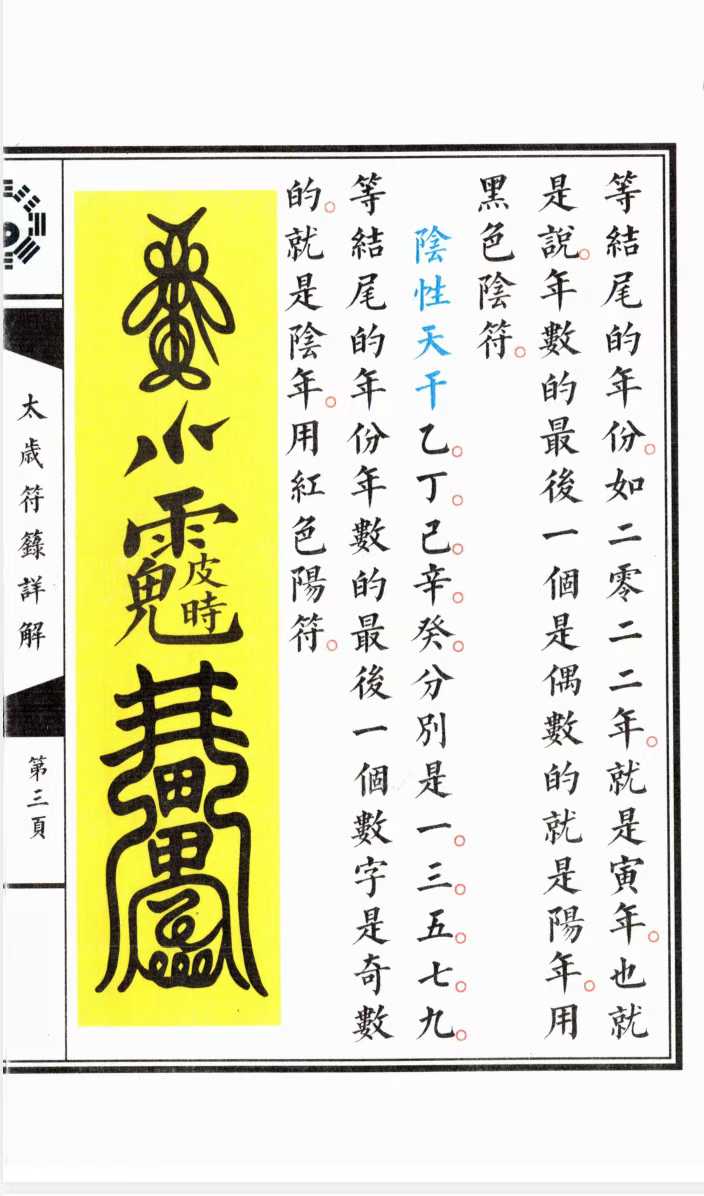 等結尾的年份。如二零二二年。就是寅年。也就
是說。年數的最後一個是偶數的就是陽年。用
黑色陰符。
陰性天干乙。丁。己。辛。癸。分別是一。三。五。七。九。
等結尾的年份年數的最後一個數字是奇數
的。就是陰年。用紅色陽符。
皮時
太歲符籙詳解
第三頁